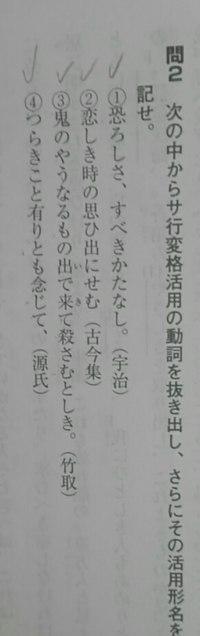 問2 次の中からサ行変格活用の動詞を抜き出し、さらにその活用形名を
記せ。
①恐ろしさ、すべきかたなし。（宇治）
②恋しき時の思ひ出にせむ（古今集）
③鬼のやうなるもの出で来て殺さむとしき。（竹取）
いき
④つらきこと有りとも念じて、（源氏）